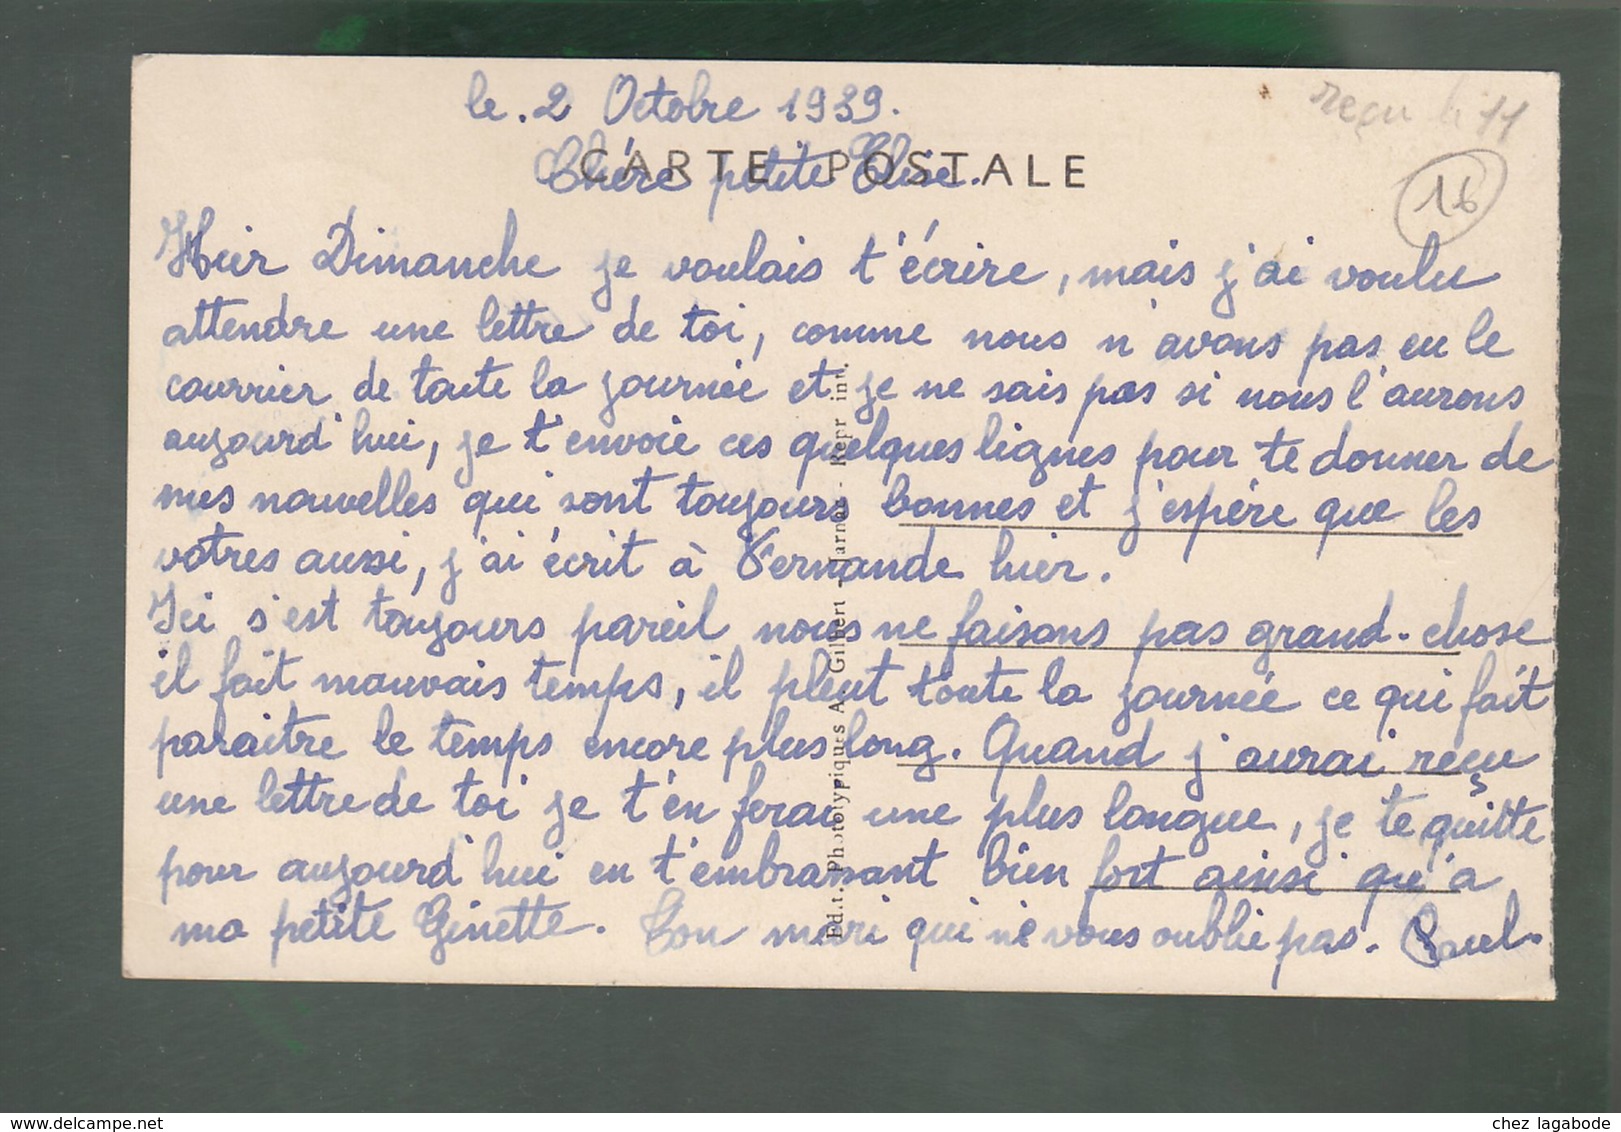 le. 2 Octobre 1939.
reçu le 11
CARTE POSTALE
Chère petite Elise.
16
Hier Dimanche je voulais t'écrire, mais j'ai voulu
attendre une lettre de toi, comme nous n'avons pas eu le
courrier de toute la journée et je ne sais pas si nous l'aurons
aujourd'hui, je t'envoie ces quelques lignes pour te donner de
mes nouvelles qui sont toujours bonnes et j'espère que les
votres aussi, j'ai écrit à Fernande hier.
Ici s'est toujours pareil nous ne faisons pas grand-chose
il fait mauvais temps, il pleut toute la journée ce qui fait
paraitre le temps encore plus long. Quand j'aurai reçu
une lettre de toi je t'en ferai une plus longue, je te quitte
pour aujourd'hui en t'embrassant bien fort ainsi qu'a
ma petite Ginette. Ton mari qui ne vous oublie pas. Paul.
Edit. Phototypiques A. Gilbert - Jarnac - Repr int.
chez lagabode